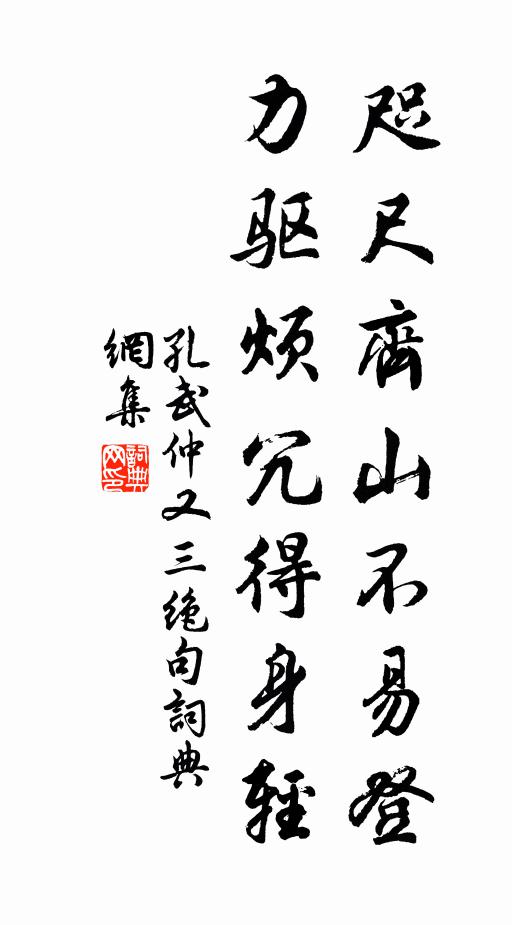 咫尺齊山不易登
力驱烦冗得身輕
孔武仲又三绝句詞典
網集
詞典网印